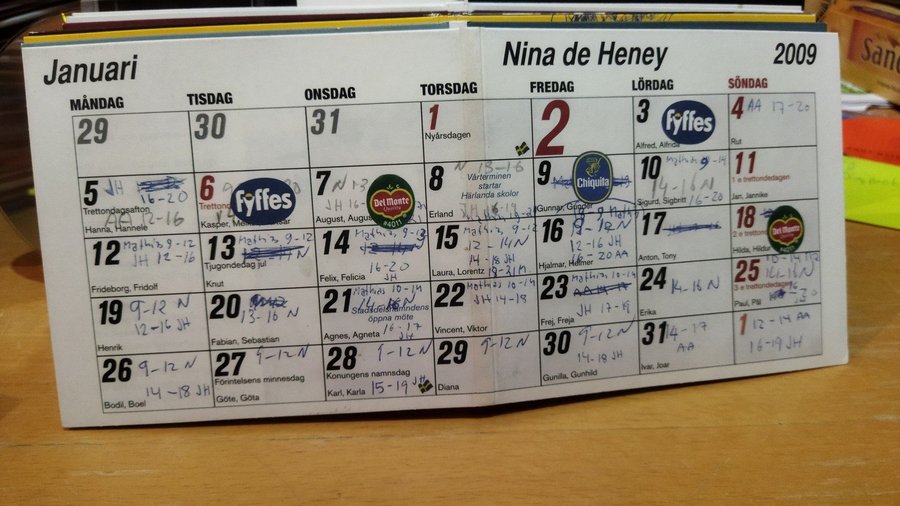 Januari
Nina de Heney
2009
MÅNDAG TISDAG ONSDAG TORSDAG FREDAG LÖRDAG SÖNDAG
29
30
31
1
Nyårsdagen
2
3
fyffes
Alfred, Alfrida
4 AA 17-20
Rut
5 JH
16-20
Trettondagsafton
Hanna, Hannele
12-16
6
Fyffes
Kasper,
7 N 13
JH 16-19
Del Monte
Quality
#4011
August, Augusta
8 N 13-16
Vårterminen
startar
Härlanda skolor
Erland
9
Chiquita
Gunnar, Gunder
10 Mathis 9-14
14-16 N
Sigurd, Sigbritt 16-20
11
1 e trettondedagen
Jan, Jannike
12 Mathis 9-12
JH 12-16
Frideborg, Fridolf
13 Mathis 9-12
Tjugondedag jul
Knut
14 Mathis 9-13
16-20
JH
Felix, Felicia
15 Mathis 9-12
12-14 N
14-18 JH
Laura, Lorentz
16 9-12 N
12-16 JH
16-20 AA
Hjalmar, Helmer
17
Anton, Tony
18
Del Monte
Quality
Hilda, Hildur
19 9-12 N
12-16 JH
Henrik
20
13-16 N
Fabian, Sebastian
21 Mathis 10-14
14-16 N
Stadsdelsnämndens
öppna möte
Agnes, Agneta 16-17
JH
22 Mathis 10-14
JH 14-18
Vincent, Viktor
23 Mathis 10-14
JH 17-19
Frej, Freja
24 14-16 N
Erika
25 10-14
14-16 N
3 e trettondedagen
Paul, Pål 16-20
26 9-12 N
14-18 JH
Bodil, Boel
27 9-12 N
Förintelsens minnesdag
Göte, Göta
28 9-12 N
Konungens namnsdag
Karl, Karla 15-19 JH
29 9-12 N
Diana
30 9-12 N
14-18 JH
Gunilla, Gunhild
31 14-17
AA
Ivar, Joar
1 12-14 AA
16-19 JH